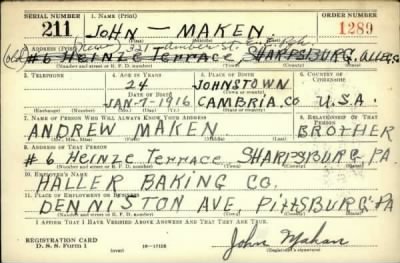 SERIAL NUMBER 1. NAME (Print) ORDER NUMBER
211 JOHN — MAKEN 1289
2. ADDRESS (Print)
(old) #6 Heinze Terrace SHARPSBURG. ALLEG.
(Number and street or R. F. D. number) (Town) (County) (State)
3. TELEPHONE 4. AGE IN YEARS 5. PLACE OF BIRTH 6. COUNTRY OF CITIZENSHIP
24 JOHNSTOWN
DATE OF BIRTH (Town or county)
JAN-7-1916 CAMBRIA.CO U.S.A.
(Exchange) (Number) (Mo.) (Day) (Yr.) (State or country)
7. NAME OF PERSON WHO WILL ALWAYS KNOW YOUR ADDRESS 8. RELATIONSHIP OF THAT PERSON
ANDREW MAKEN BROTHER
9. ADDRESS OF THAT PERSON
#6 Heinze Terrace SHARPSBURG PA
(Number and street or R. F. D. number) (Town) (County) (State)
10. EMPLOYER'S NAME
HALLER BAKING CO.
11. PLACE OF EMPLOYMENT OR BUSINESS
DENNISTON AVE. PITTSBURG-PA
(Number and street or R. F. D. number) (Town) (County) (State)
I AFFIRM THAT I HAVE VERIFIED ABOVE ANSWERS AND THAT THEY ARE TRUE.
REGISTRATION CARD
D. S. S. Form 1 (over) 16—17105 John Mahan